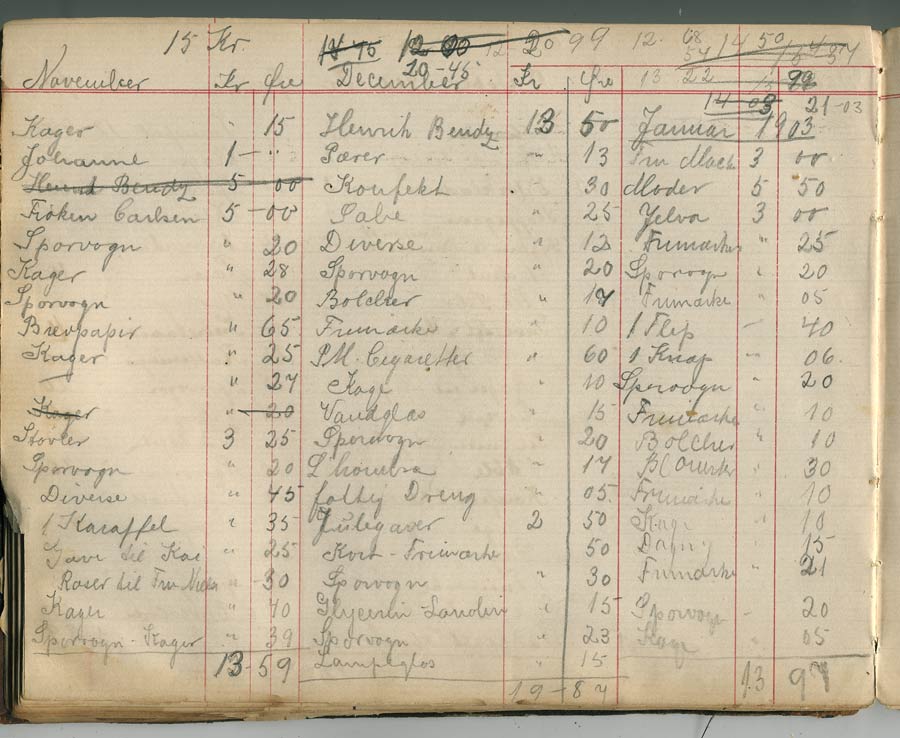 15 Kr.
November Kr Øre
Kager " 15
Johanne 1 - "
Henrik Bendz 5 - 00
Frøken Carlsen 5 - 00
Sporvogn " 20
Kager " 28
Sporvogn " 20
Brevpapir " 65
Kager " 25
" 27
Kager " 20
Støvler 3 25
Sporvogn " 20
Diverse " 45
1 Karaffel " 35
Gave til " 25
Roser til Fru 30
Kager " 40
Sporvogn - Kager " 39
13 59
14 45 12 00 12 20 99
20-45
December Kr Øre
Henrik Bendz 13 50
Pærer " 13
Konfekt 30
Sæbe " 25
Diverse " 12
Sporvogn " 20
Bolcher " 17
Frimærke 10
P.M. Cigaretter " 60
Kage 10
Vandglas " 15
Sporvogn " 20
L'hombre " 17
fattig Dreng " 05
Julegaver 2 50
Kort - Frimærke 50
Sporvogn " 30
Glycerin - Lanolin " 15
Sporvogn " 23
Lampeglas " 15
19 - 87
12. 68 14 50
54
13 22
99
14 03 21-03
Januar 1903
Fru 3 00
Moder 5 50
Jelva 3 00
Frimærker " 25
Sporvogn " 20
Frimærke 05
1 Flip - 40
1 Knap " 06
Sporvogn " 20
Frimærke " 10
Bolcher " 10
30
Frimærke " 10
Kage " 10
15
Frimærke " 21
Sporvogn - 20
Kage " 05
13 97